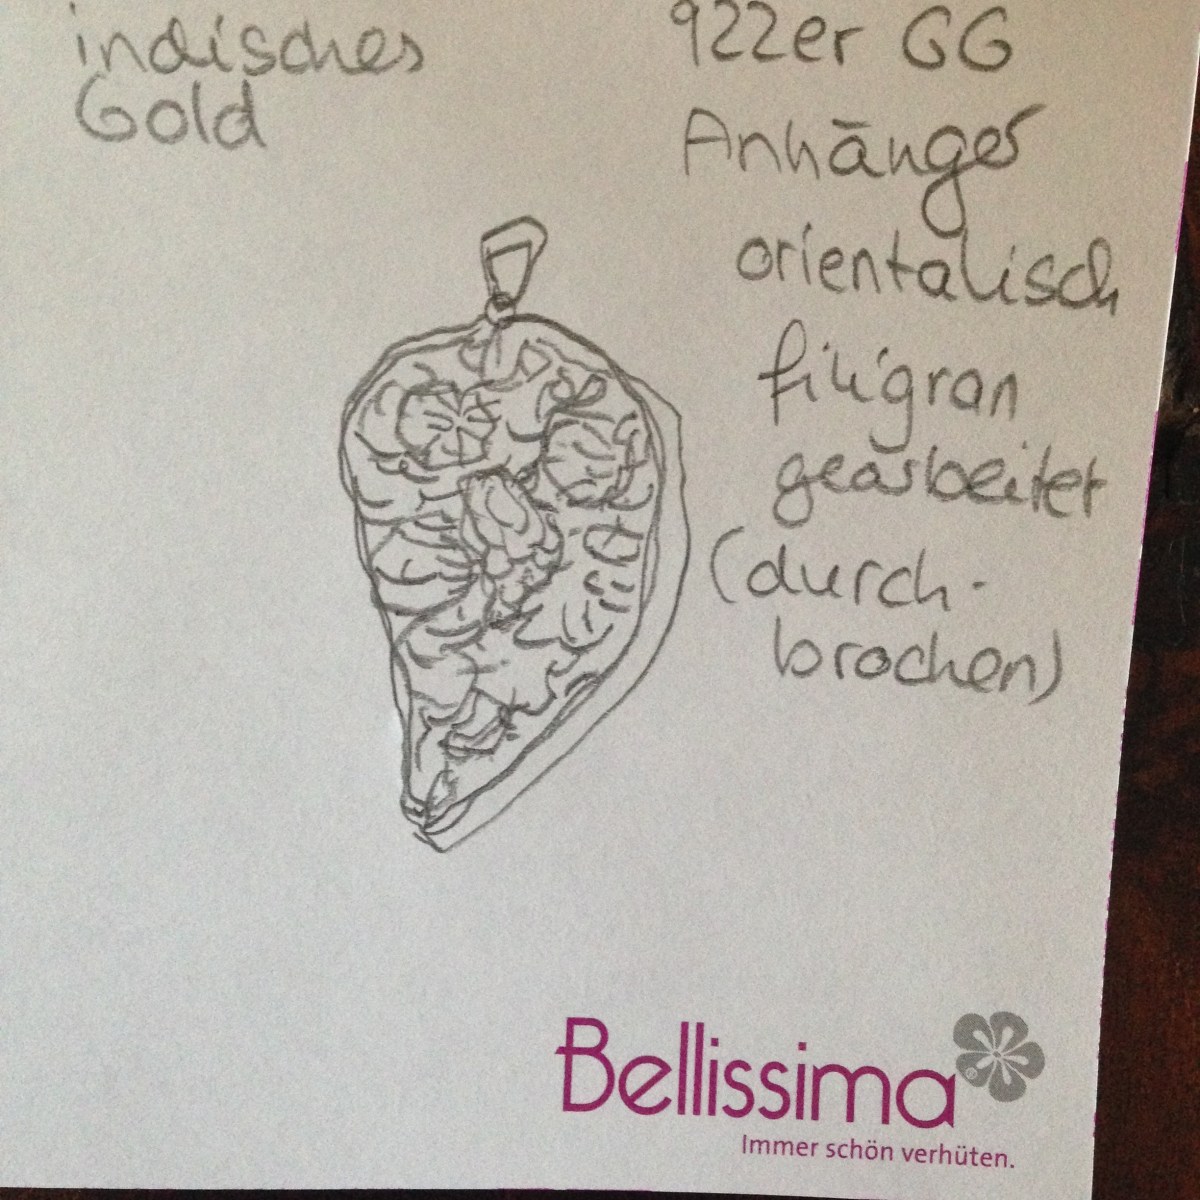 indisches
Gold
922er GG
Anhänger
orientalisch
filigran
gearbeitet
(durch-
brochen)
Bellissima®
Immer schön verhüten.